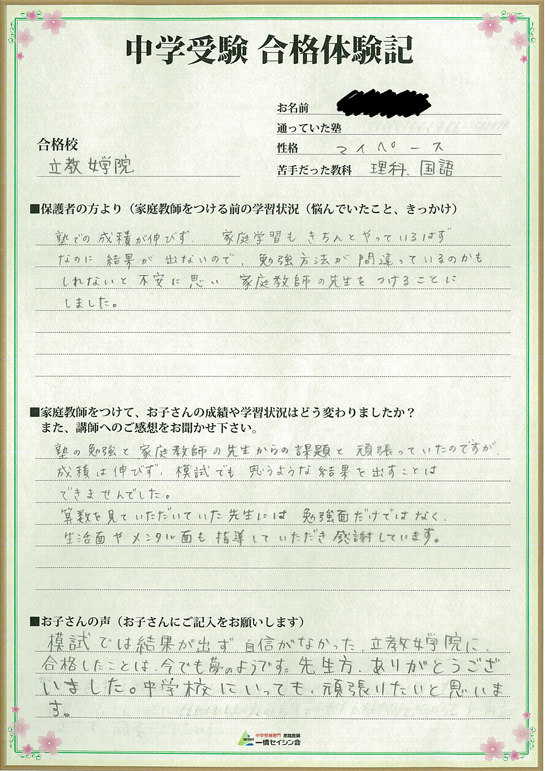 中学受験 合格体験記
お名前
通っていた塾
合格校
性格 マイペース
立教女学院
苦手だった教科 理科、国語
■保護者の方より（家庭教師をつける前の学習状況（悩んでいたこと、きっかけ）
塾での成績が伸びず、家庭学習もきちんとやっているはず
なのに結果が出ないので、勉強方法が間違っているのかも
しれないと不安に思い 家庭教師の先生をつけることに
しました。
■家庭教師をつけて、お子さんの成績や学習状況はどう変わりましたか？
また、講師へのご感想をお聞かせ下さい。
塾の勉強と家庭教師の先生からの課題と頑張っていたのですが、
成績は伸びず、模試でも思うような結果を出すことは
できませんでした。
算数を見ていただいていた先生には 勉強面だけではなく、
生活面やメンタル面も指導していただき感謝しています。
■お子さんの声（お子さんにご記入をお願いします）
模試では結果が出ず、自信がなかった、立教女学院に、
合格したことは、今でも夢のようです。先生方、ありがとうござ
いました。中学校にいっても、頑張りたいと思いま
す。
中学受験専門 家庭教師
一橋セイシン会